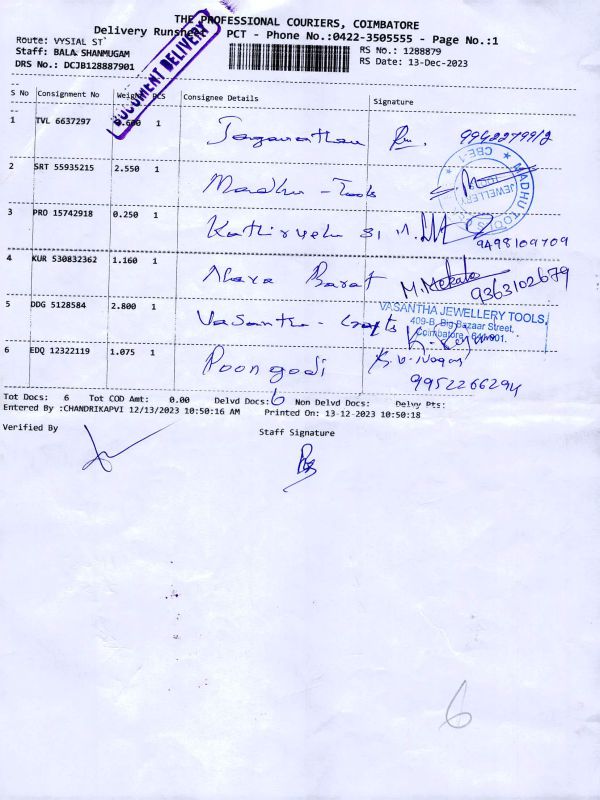 THE PROFESSIONAL COURIERS, COIMBATORE
Delivery Runsheet PCT - Phone No.:0422-3505555 - Page No.:1
Route: VYSIAL ST RS No.: 1288879
Staff: BALA SHANMUGAM RS Date: 13-Dec-2023
DRS No.: DCJB128887901
DOCUMENT DELIVERY
S No Consignment No Weight PCS Consignee Details Signature
1 TVL 6637297 0.600 1 Jaganathan
2 SRT 55935215 2.550 1 Madhu - Tools
MADHU TOOLS JEWELLERY CBE-1
3 PRO 15742918 0.250 1 Kathirvelu 9498109709
4 KUR 530832362 1.160 1 Barat M. Mekala 9363102679
5 DDG 5128584 2.800 1 Vasantha - Crafts
VASANTHA JEWELLERY TOOLS,
409-B, Big Bazaar Street,
Coimbatore - 641 001.
6 EDQ 12322119 1.075 1 Poongodi
9952266294
Tot Docs: 6 Tot COD Amt: 0.00 Delvd Docs: 6 Non Delvd Docs: Delvy Pts:
Entered By :CHANDRIKAPVI 12/13/2023 10:50:16 AM Printed On: 13-12-2023 10:50:18
Verified By Staff Signature
6